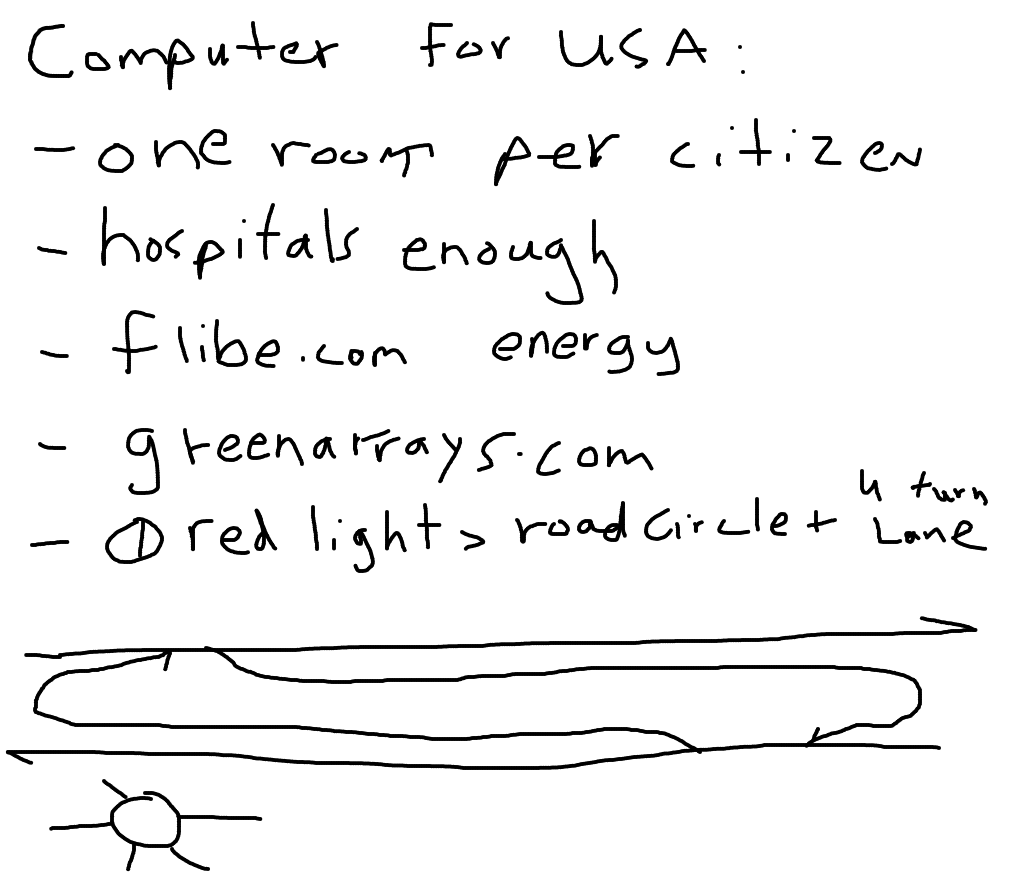 Computer for USA:
- one room per citizen
- hospitals enough
- flibe.com energy
- greenarrays.com
- ① red light > road circle + u turn Lane